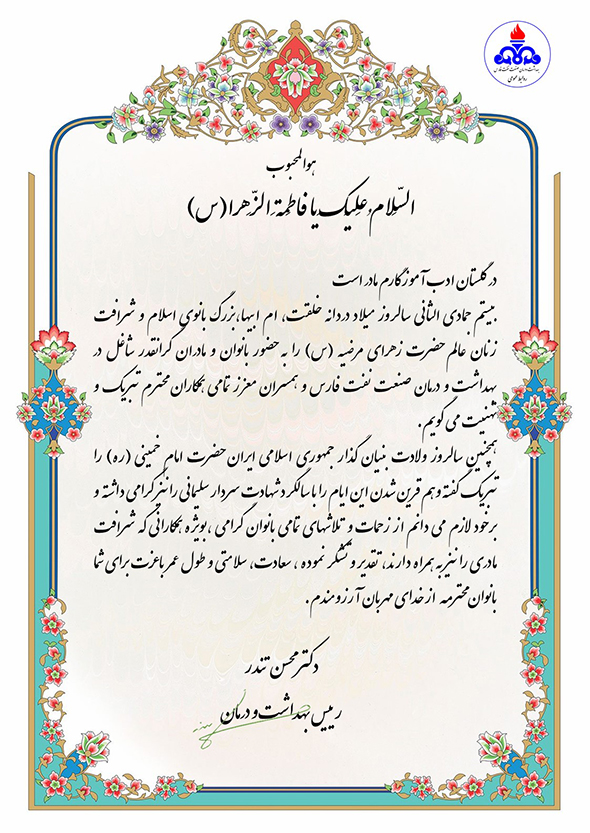 بهداشت و درمان صنعت نفت فارس
روابط عمومی
هوالمحبوب
السّلامُ عَلیکِ یا فاطمة الزّهرا (س)
در گلستان ادب آموزگارم مادر است
بیستم جمادی الثانی سالروز میلاد دردانه خلقت، ام ابیها،بزرگ بانوی اسلام و شرافت
زنان عالم حضرت زهرای مرضیه (س) را به حضور بانوان و مادران گرانقدر شاغل در
بهداشت و درمان صنعت نفت فارس و همسران معزز تمامی همکاران محترم تبریک و
تهنیت می گویم.
همچنین سالروز ولادت بنیان گذار جمهوری اسلامی ایران حضرت امام خمینی (ره) را
تبریک گفته و هم قرین شدن این ایام را با سالگرد شهادت سردار سلیمانی را نیز گرامی داشته و
بر خود لازم می دانم از زحمات و تلاشهای تمامی بانوان گرامی ،بویژه همکارانی که شرافت
مادری را نیز به همراه دارند، تقدیر و تشکر نموده ، سعادت، سلامتی و طول عمر باعزت برای شما
بانوان محترمه از خدای مهربان آرزومندم.
دکتر محسن تندر
رییس بهداشت و درمان